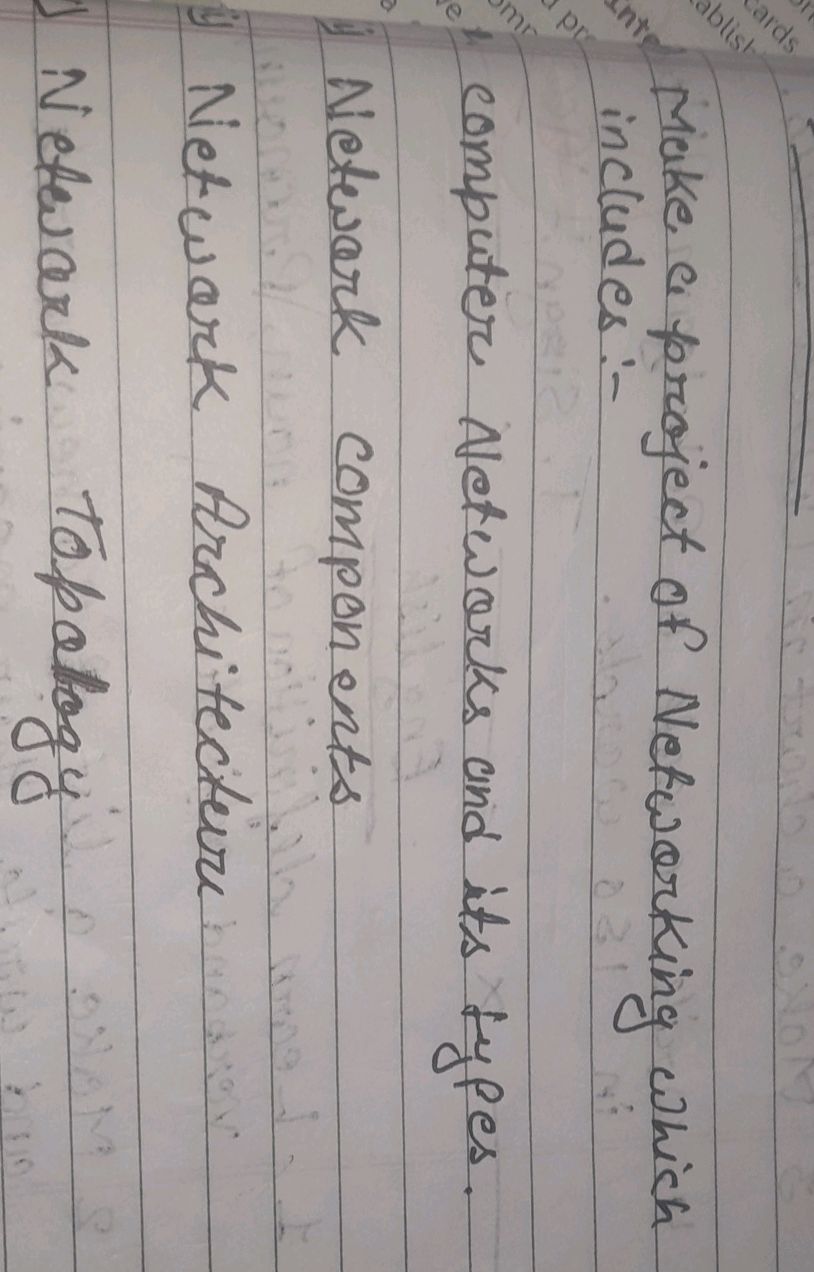 Make a project of Networking which
includes:-
computer Networks and its types.
ii) Network components
iii) Network Architecture
Network Topology